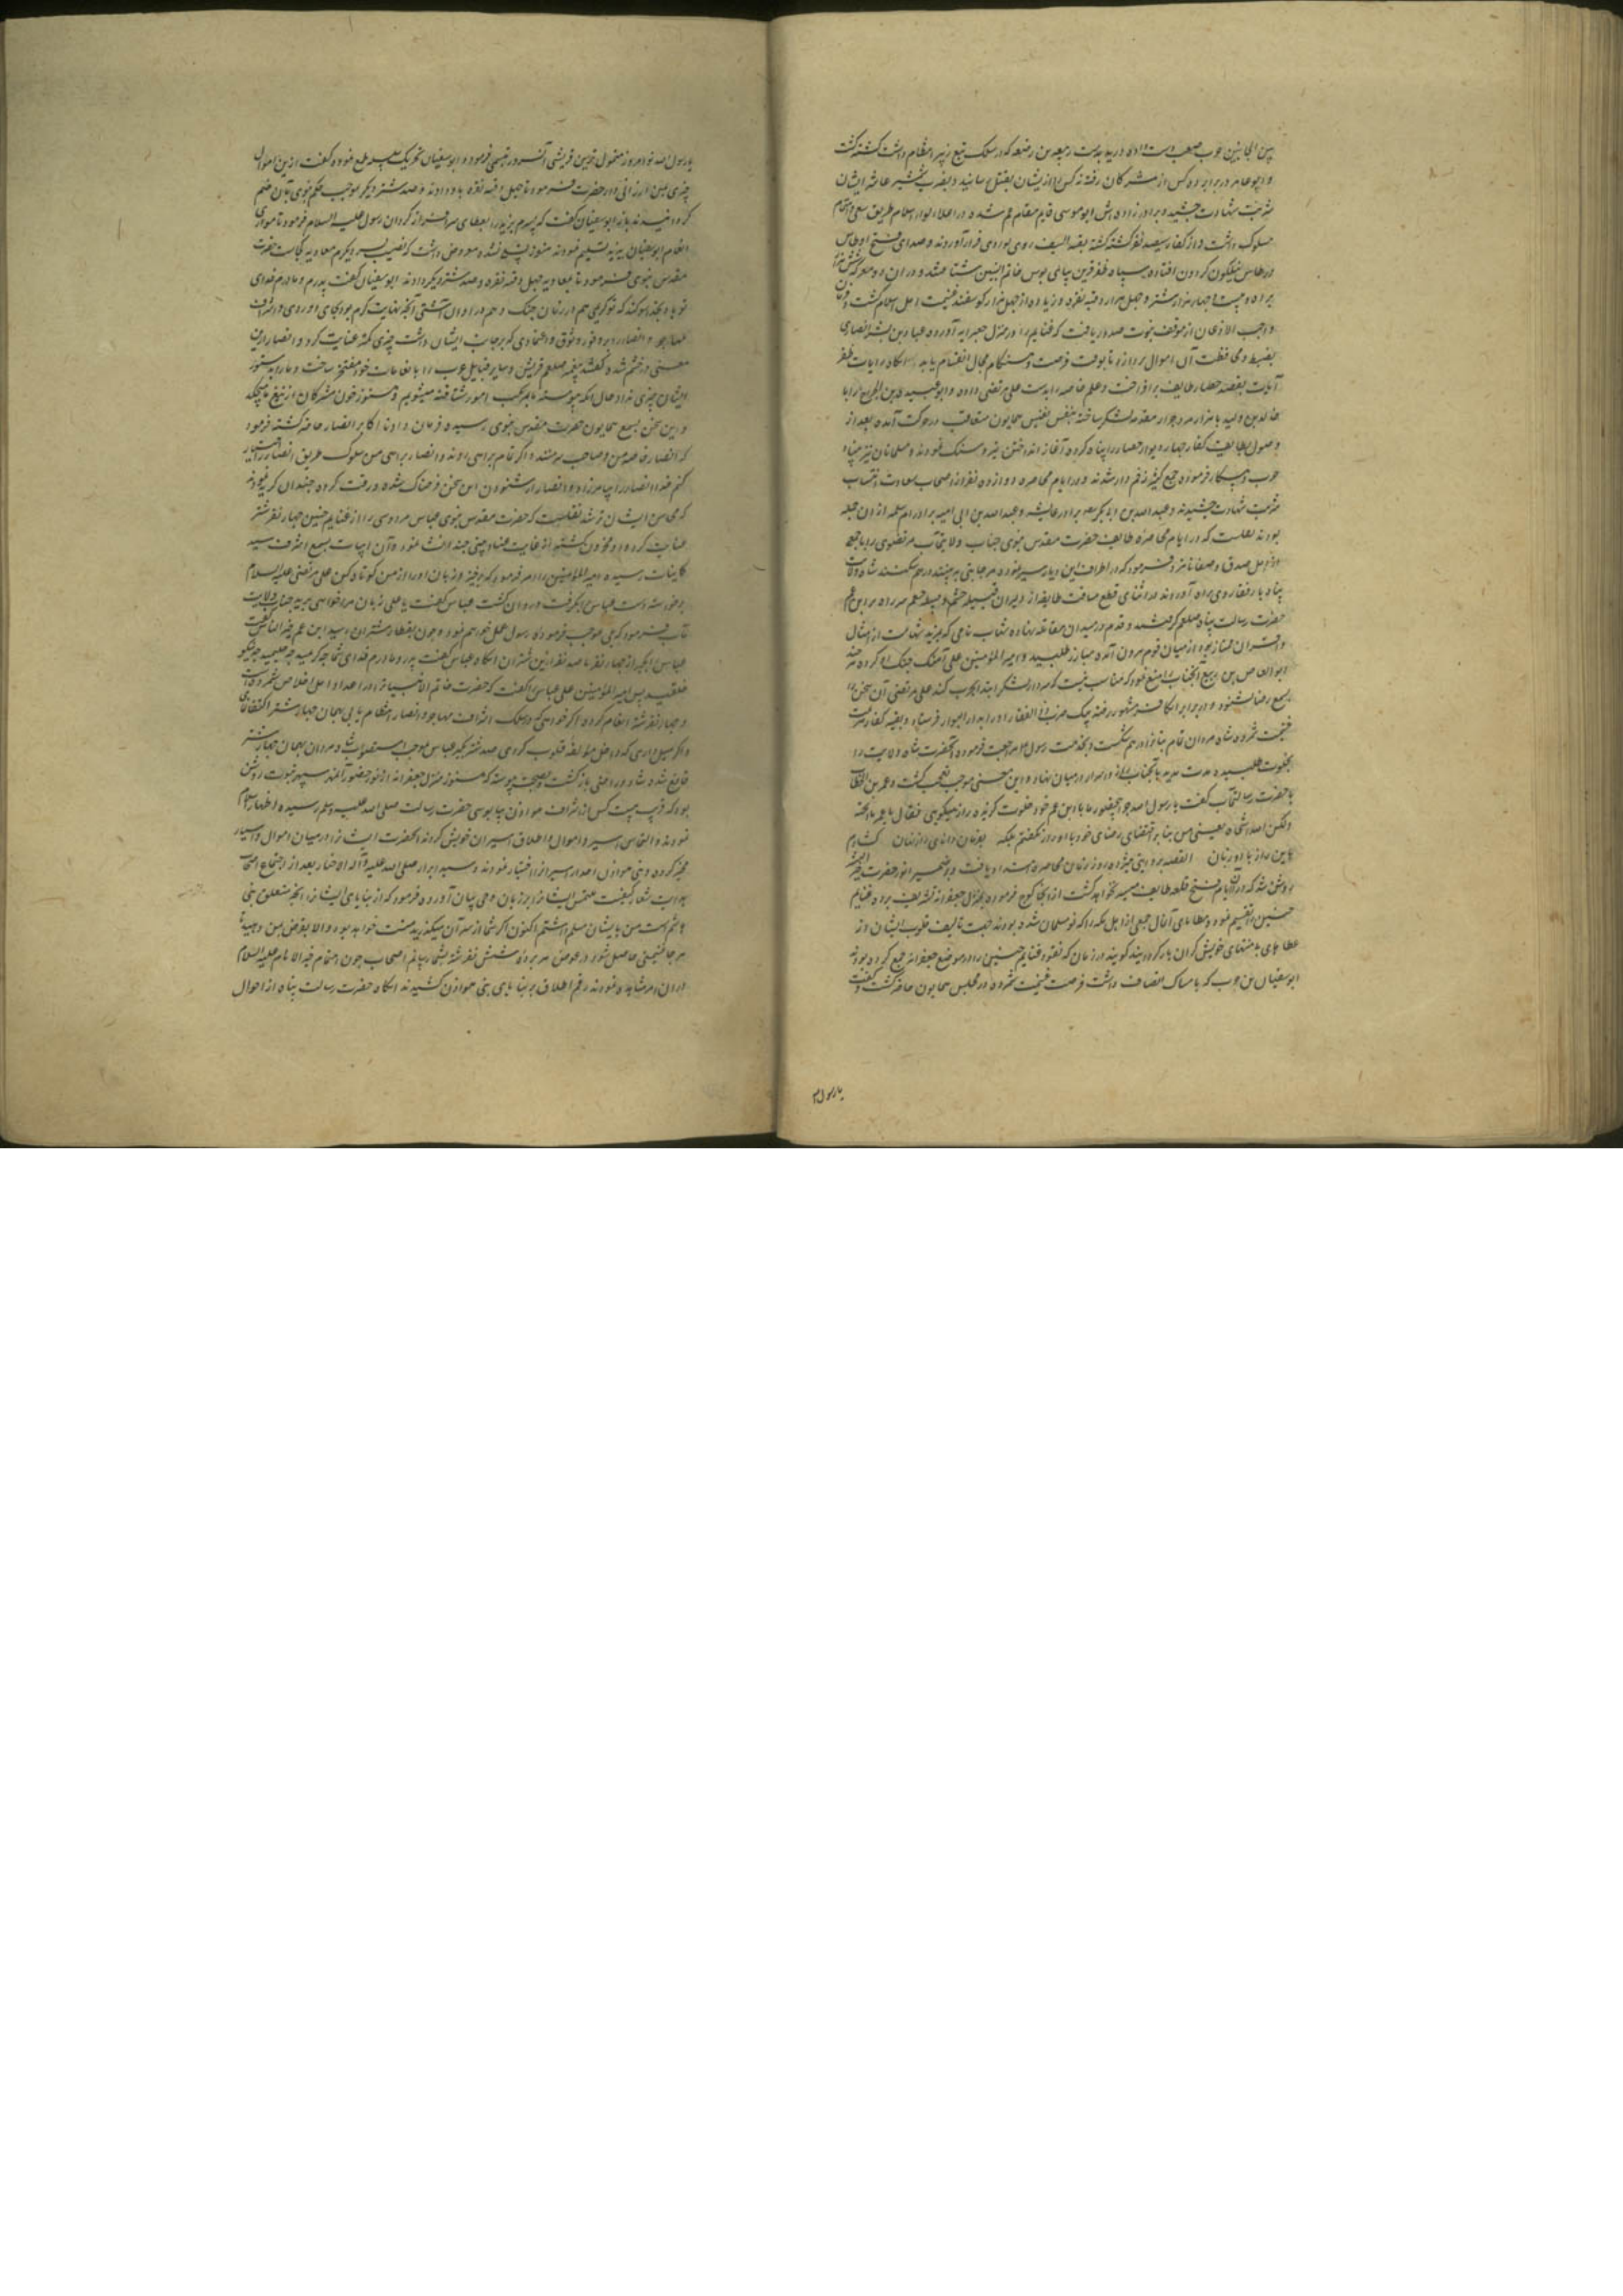 و ابو عامر در برابر ده کس از مشرکان رفته نه کس را از ایشان بقتل رسانید و بضرب شمشیر عاشر ایشان
شربت شهادت چشید و برادرزاده اش ابو موسی قایم مقام عم شده در اعلاء لواء اسلام طریق سعی و اهتمام
مسلوک داشت و از کفار سیصد نفر کشته گشته بقیة السیف روی بوادی فرار آوردند و صدای فتح اوطاس
در طاس نیلگون گردون افتاده سپاه ظفر قرین بپای بوس خاتم النبیین شتافتند و در آن دو معرکه شش هزار
برده و بیست و چهار هزار شتر و چهل هزار وقیه نقره و زیاده از چهل هزار گوسفند غنیمت اهل اسلام گشت و فرمان
واجب الاذعان از موقف نبوت صدور یافت که غنایم را در منزل جعرانه آورده عباد بن بشر انصاری
بضبط و محافظت آن اموال پردازد تا بوقت فرصت و هنگام مجال انقسام یابد آنگاه رایات ظفر
آیات بقصد حصار طایف برافراخت و علم خاصه را بدست علی مرتضی داده و ابو عبیده بن الجراح را با
خالد بن ولید با هزار مرد جرار مقدمه لشکر ساخته بنفس نفیس همایون متعاقب در حرکت آمده بعد از
وصول بطایف کفار چهار دیوار حصار را پناه کرده آغاز انداختن تیر و سنگ نمودند و مسلمانان نیز
حرب و پیکار فرموده جمع کثیر زخم دار شدند و در ایام محاصره دوازده نفر از اصحاب سعادت انتساب
شربت شهادت چشیدند و عبد الله بن ابا بکر برادر عایشه و عبد الله بن ابی امیه برادر ام سلمه از آن جمله
بودند نقلست که در ایام محاصره طایف حضرت مقدس نبوی جناب ولایتمآب مرتضوی را با جمعی
از اهل صدق و صفا نامزد فرمود که در اطراف این دیار سیر نموده هر جا بتی به بینند درهم شکنند شاه ولایت
پناه با رفقا روی براه آوردند در اثنای قطع مسافت طایفه از دلیران قبیله خثعم سر راه بر ابن عم
حضرت رسالت پناه صلعم گرفتند و قدم در میدان مقاتله نهاده شهاب نامی که بمزید شهامت از امثال
و اقران ممتاز بود از میان قوم بیرون آمده مبارز طلبید و امیر المؤمنین علی آهنگ جنگ او کرده هر چند
ابو العاص بن ربیع آنجناب را منع نمود که مناسب نیست که سردار لشکر ابتدا بحرب کند علی مرتضی آن سخن را
بسمع رضا نشنود و در برابر آن کافر مشهور رفته بیک ضرب ذو الفقار او را بدار البوار فرستاد و بقیه کفار
غنیمت شمرده شاه مردان تمام بتانرا درهم شکست و بخدمت رسول مراجعت فرموده آنحضرت شاه ولایت را
بخلوت طلبیده مدت مدید با آنجناب راز و اسرار در میان نهاد و این معنی موجب تعجب گشت و عمر بن الخطاب
با حضرت رسالتمآب گفت یا رسول الله چه میفرمایی با ابن عم خود خلوت گزیده راز میگویی فقال یا عمر ما انتجیته
ولکن الله انتجاه یعنی من بنا بر اقتضای رضای خود با او راز نگفتم بلکه بفرمان دانای راز نهان گشادم
باین راز با او زبان القصه بروایتی هیژده روز زمان محاصره امتداد یافت و بر ضمیر انور حضرت خیر البشر
روشن شد که در آن ایام فتح قلعه طایف میسر نخواهد گشت از آنجا کوچ فرموده بمنزل جعرانه تشریف برده غنایم
حنین را تقسیم نمود و عطاهای آنان جمعی از اهل مکه را که نو مسلمان شده بودند جهت تالیف قلوب ایشان از
عطاهای با منتهای خویش گران بار کردانید گویند در زمان که نقود غنایم حنین را در موضع جعرانه جمع کرده بودند
ابو سفیان بن حرب که بامساک اتصاف داشت فرصت غنیمت شمرده در مجلس همایون حاضر گشت و گفت
یا رسول
یا رسول الله تو امروز متمول ترین قریشی آنسرور تبسمی فرمود و ابو سفیان تحریک سلسله طمع نموده گفت از این اموال
چیزی بمن ارزانی دار حضرت فرمود تا چهل وقیه نقره باو دادند و صد شتر دیگر موجب حکم نبوی بآن ضم
گردانیدند باز ابو سفیان گفت که پسرم یزید را بعطای سرافراز گردان رسول علیه السلام فرمود تا موازی
انعام ابو سفیان به یزید تسلیم نمودند هنوز پشیمان نشده معروض داشت که نصیب پسر دیگرم معاویه کجاست حضرت
مقدس نبوی فرمود تا بمعاویه چهل وقیه نقره و صد شتر دیگر دادند ابو سفیان گفت پدرم و مادرم فدای
تو باد بخدا سوگند که تو کریمی هم در زمان جنگ و هم در اوان آشتی آنچه نهایت کرم بود بجای آوردی و اشراف
مهاجر و انصار را بر وفور وثوق و اعتمادی که بر جانب ایشان داشت چیزی کمتر عنایت کرد و انصار از این
معنی در خشم شده گفتند پیغمبر صلعم قریش و سایر قبایل عرب را بانعامات خود مفتخر ساخت و ما را بدستور
ایشان چیزی نداد حال آنکه پیوسته ما بترتیب امور شتافته میشویم و هنوز خون مشرکان از تیغ ما میچکد
و این سخن بسمع همایون حضرت مقدس نبوی رسیده فرمان داد تا اکابر انصار حاضر گشته فرمود
که انصار خاصه من و صاحب سر منند و اگر تمام براهی روند و انصار براهی من سلوک طریق انصار را اختیار
کنم خدا انصار را بیامرزاد و انصار از شنودن این سخن فرحناک شده و رقت کرده چندان گریه نمودند
که محاسن ایشان تر شد نقلست که حضرت مقدس نبوی عباس مرداس را از غنایم حنین چهار نفر شتر
عنایت کرد و او محزون گشته از غایت عناد بیتی چند انشا نمود و آن ابیات بسمع اشرف سید
کاینات رسیده امیر المؤمنین را امر فرمود که برخیز و زبان او را از من کوتاه کن علی مرتضی علیه السلام
برخاسته دست عباس را بگرفت و روان گشت عباس گفت یا علی زبان مرا خواهی برید جناب ولایت
مآب فرمود که بموجب فرموده رسول عمل خواهم نمود و چون بقطار شتران رسید ابن عم خیر الناس گفت
عباس را بگیر از چهار نفر تا صد نفر از این شتران آنگاه عباس گفت پدر و مادرم فدای شما چه کریمید و چه حلیمید و چه نیکو
خلقید پس امیر المؤمنین علی عباس را گفت که حضرت خاتم الانبیا ترا در اعداد اهل اخلاص شمرده است
و چهار نفر شتر انعام کرده اگر خواهی که در سلک اشراف مهاجر و انصار انتظام یابی بهمان چهار شتر اکتفا نمای
و اگر میل داری که داخل مؤلفه قلوب گردی صد شتر بگیر عباس بموجب استصواب شاه مردان بهمان چهار شتر
قانع شد و شاد و راضی بازگشت و بصحت پیوسته که هنوز منزل جعرانه از نور حضور آن مهر سپهر نبوت روشن
بود که قریب بیست کس از اشراف هوازن بپا بوسی حضرت رسالت صلی الله علیه وسلم رسیده اظهار اسلام
نمودند و التماس استرداد اموال و اطلاق اسیران خویش کردند آنحضرت ایشانرا در میان اموال و اسیران
مخیر کرده و بنی هوازن استرداد اسیرانرا اختیار نمودند و سید ابرار صلی الله علیه و آله الاخیار بعد از اجتماع اصحاب
هدایت شعار کیفیت ملتمس ایشانرا بر زبان وحی بیان آورده فرمود که از سبایای ایشان آنچه متعلق ببنی
هاشم است من بایشان مسلم داشتم اکنون اگر شما از سر آن میگذرید منت خواهد بود و الا بقرض بمن دهید تا
هر جا غنیمتی حاصل شود در عوض هر برده شش نفر شتر بشما رسانم اصحاب چون اهتمام خیر الانام علیه السلام
در آن امر مشاهده نمودند رقم اطلاق بر سبایای بنی هوازن کشیدند آنگاه حضرت رسالت پناه از احوال